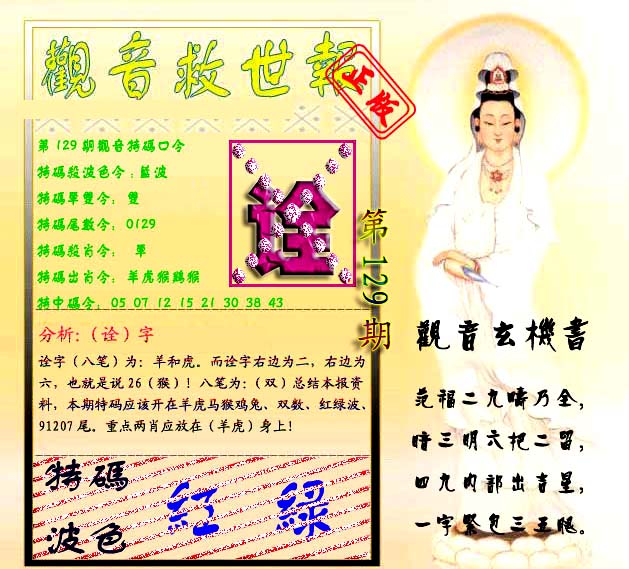 觀音救世報
正版
第129期觀音特碼口令
特碼殺波色令:藍波
特碼單雙令: 雙
特碼尾數令: 0129
特碼殺肖令: 單
特碼出肖令: 羊虎猴鷄猴
特中碼令: 05 07 12 15 21 30 38 43
诠
第129期
分析:(诠)字
诠字(八笔)为: 羊和虎。而诠字右边为二, 右边为
六, 也就是说26(猴)! 八笔为:(双)总结本报资
料, 本期特码应该开在羊虎马猴鸡兔、双数、红绿波、
91207尾。重点两肖应放在(羊虎)身上!
特碼
波色
紅 綠
觀音玄機書
范福二九嗨乃全,
暗三明六把二留,
四九内部出吉星,
一字紧包三五腿。